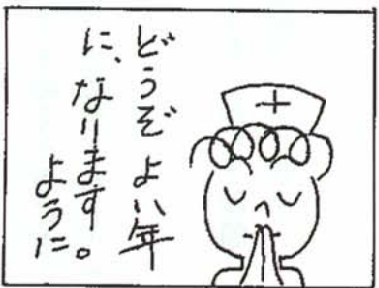 どうぞよい年
に、なります。
ように